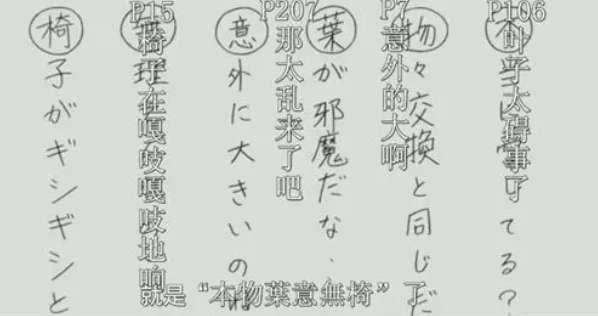 てる？
P106
叶子太碍事了
物々交換と同じだ
P7
意外的大啊
葉が邪魔だな、
P207
那太乱来了吧
意外に大きいの
P15
椅子在嘎吱嘎吱地响
椅子がギシギシと
就是“本物葉意無椅”了